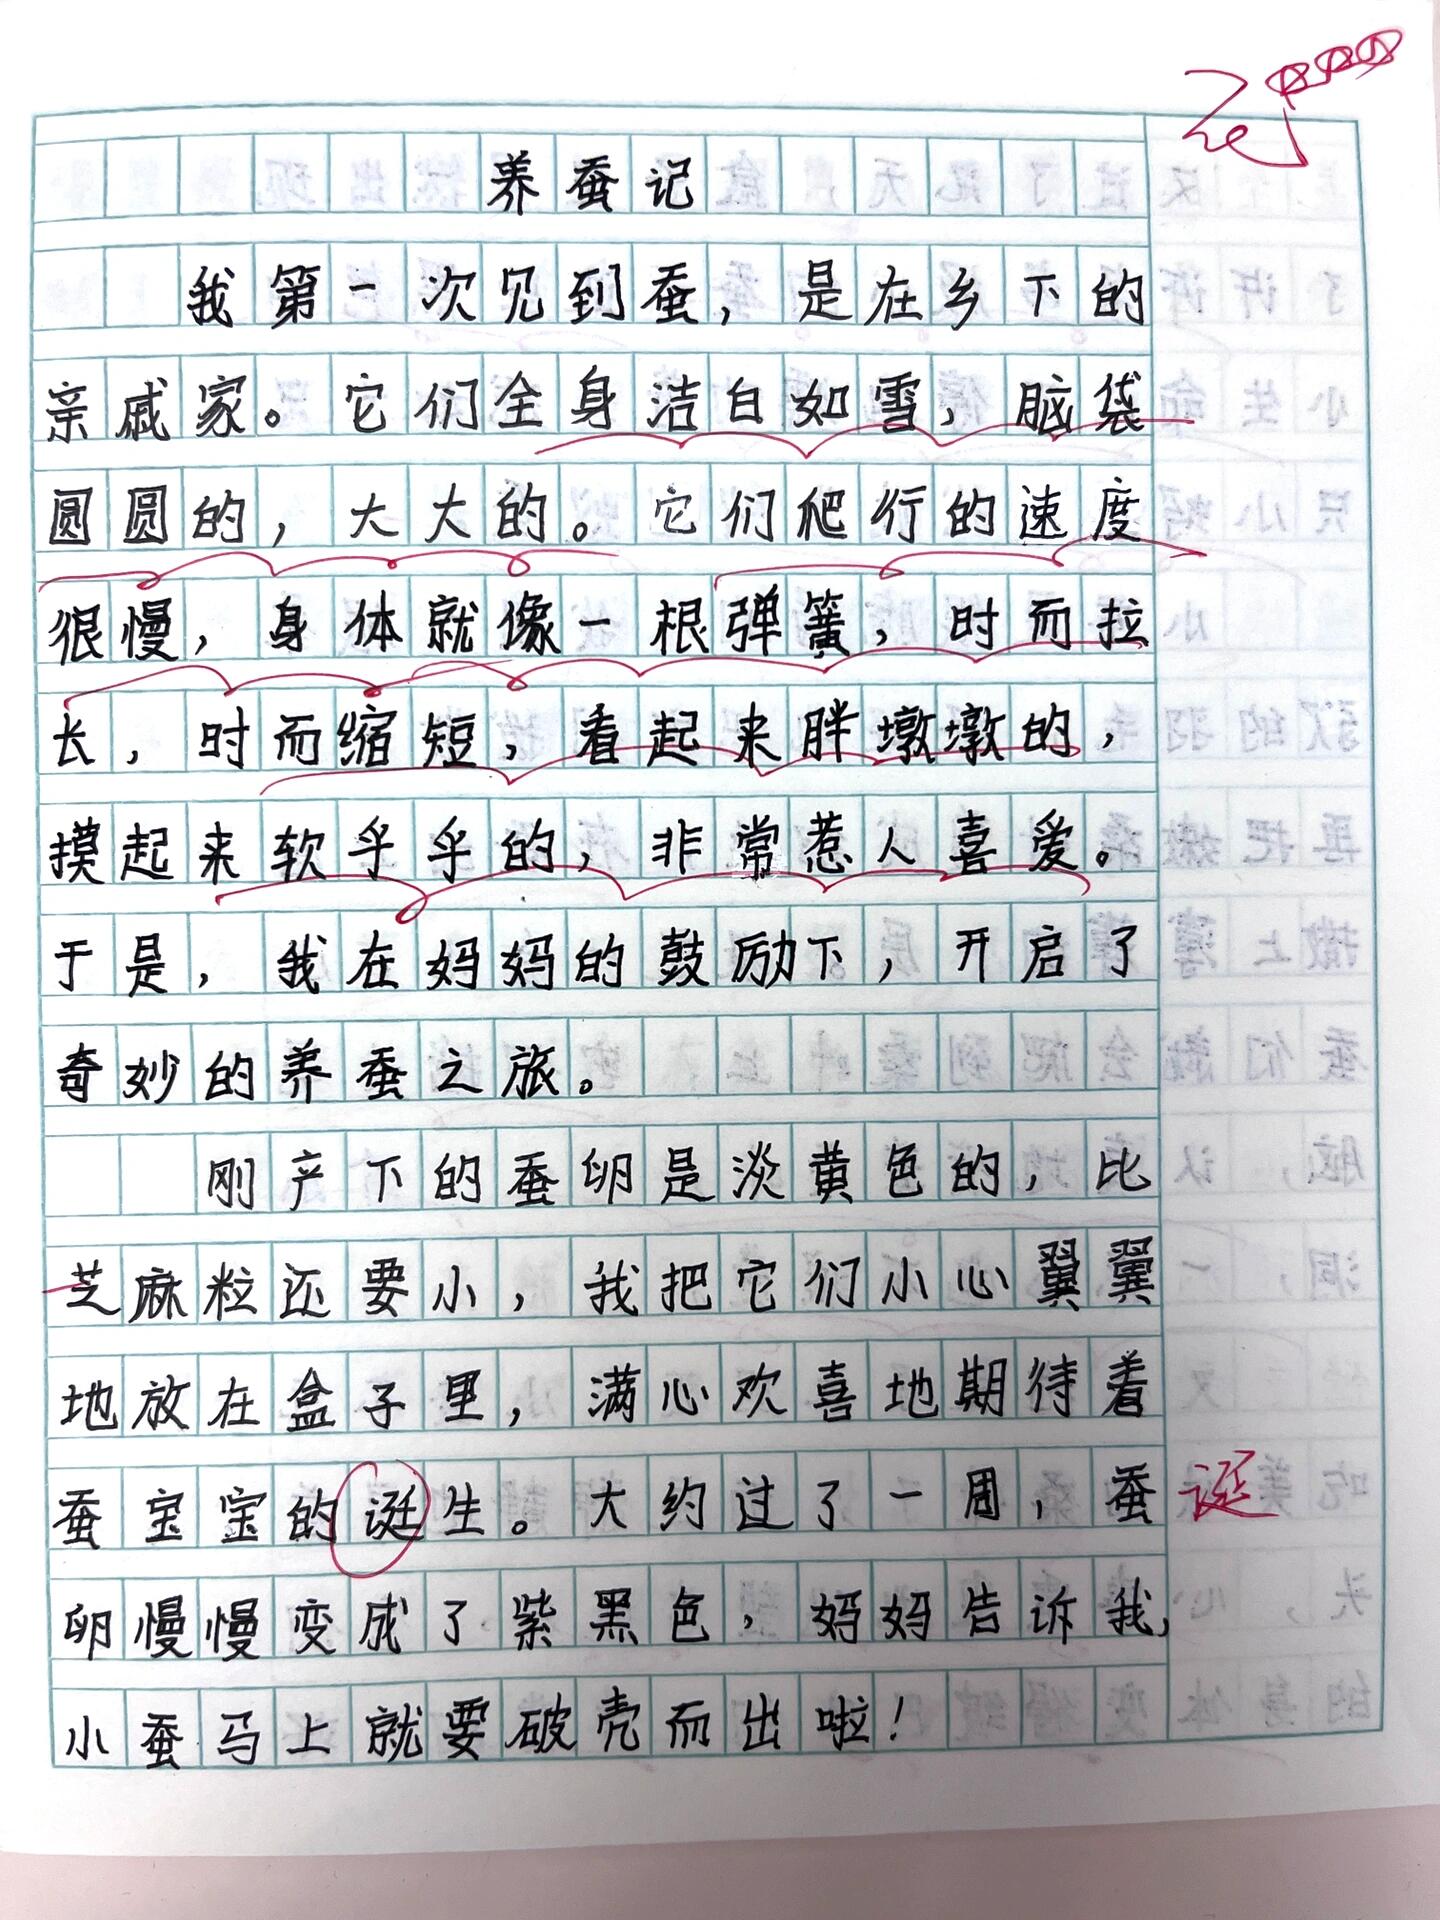 养蚕记
我第一次见到蚕，是在乡下的
亲戚家。它们全身洁白如雪，脑袋
圆圆的，大大的。它们爬行的速度
很慢，身体就像一根弹簧，时而拉
长，时而缩短，看起来胖墩墩的，
摸起来软乎乎的，非常惹人喜爱。
于是，我在妈妈的鼓励下，开启了
奇妙的养蚕之旅。
刚产下的蚕卵是淡黄色的，比
芝麻粒还要小，我把它们小心翼翼
地放在盒子里，满心欢喜地期待着
蚕宝宝的诞生。大约过了一周，蚕
诞
卵慢慢变成了紫黑色，妈妈告诉我，
小蚕马上就要破壳而出啦！